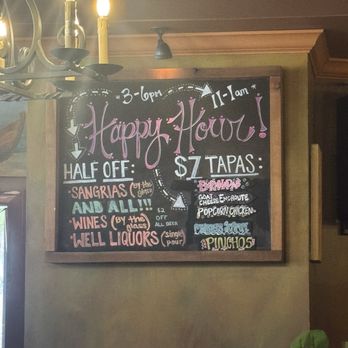 3-6pm
11-1am
Happy Hour!
HALF OFF:
SANGRIAS (by the glass)
AND ALL!!!
WINES (by the glass)
WELL LIQUORS (single pour)
$2
OFF
ALL BEER
$7 TAPAS:
EMPANADAS
GOAT
CHEESE EN CROUTE
POPCORN CHICKEN
PINCHOS